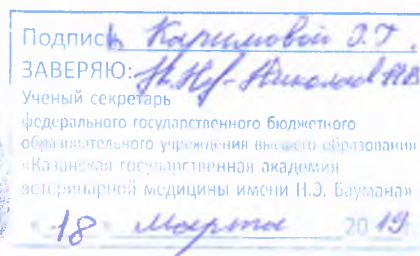 Подпись Каримовой Э.Т
ЗАВЕРЯЮ:
Ученый секретарь
федерального государственного бюджетного
образовательного учреждения высшего образования
«Казанская государственная академия
ветеринарной медицины имени Н.Э. Баумана»
18 марта 2019